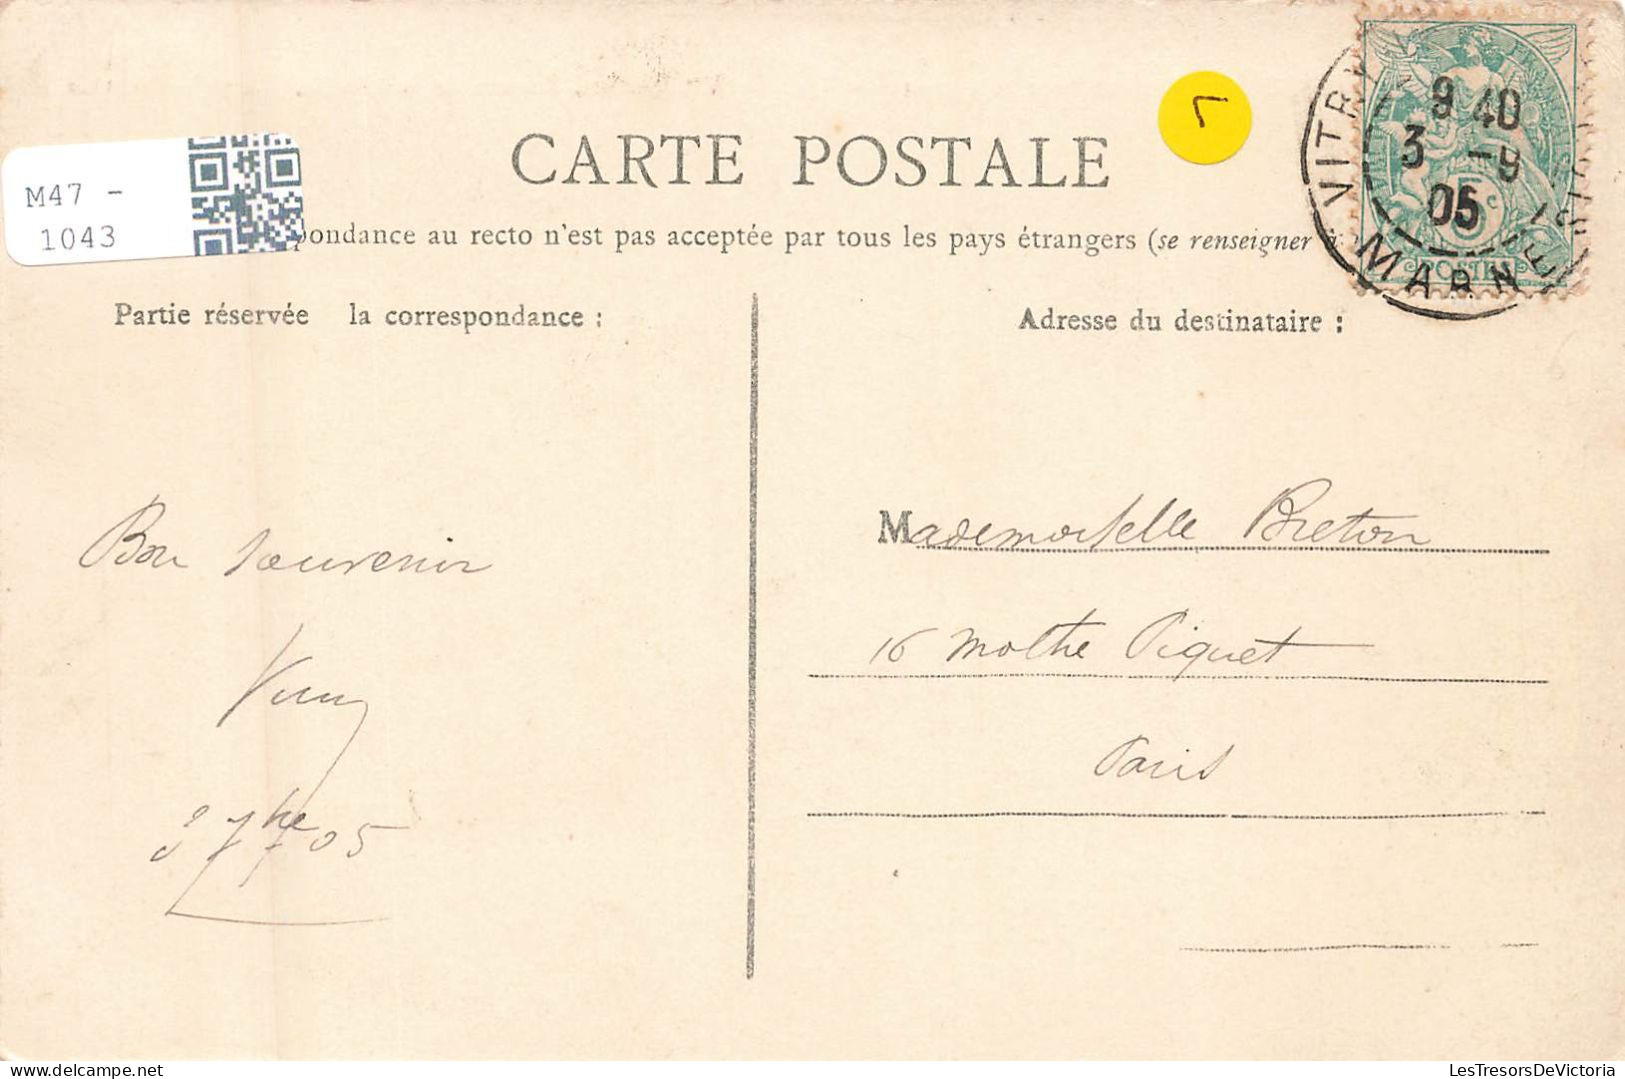 M47 -
1043
CARTE POSTALE
pondance au recto n'est pas acceptée par tous les pays étrangers (se renseigner à
Partie réservée la correspondance :
Adresse du destinataire :
VITRY
MARNE
9 40
3 -9
05
5c
POSTES
Bon souvenir
3 7bre 05
Mademoiselle Breton
16 Mothe Piquet
Paris
LesTresorsDeVictoria